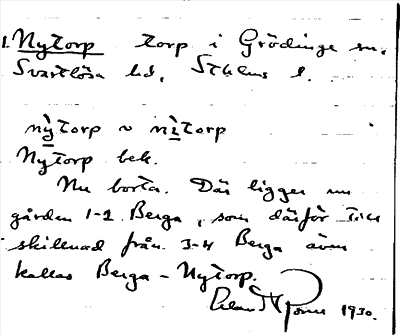 1. Nytorp torp i Grödinge sn.
Svartlösa hd, Sthlms l.
nỳtorp ~ nìtorp
Nytorp bek.
Nu borta. Där ligger nu
gården 1-2 Berga, som därför till
skillnad från 3-4 Berga även
kallas Berga-Nytorp.
1930.